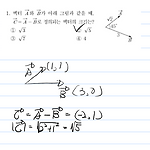 1. 벡터 A와 B가 아래 그림과 같을 때,
C = A - B로 정의되는 벡터의 크기는?
① √3
② √5
④ 4
A (1, 1)
B (3, 0)
C = A - B = (-2, 1)